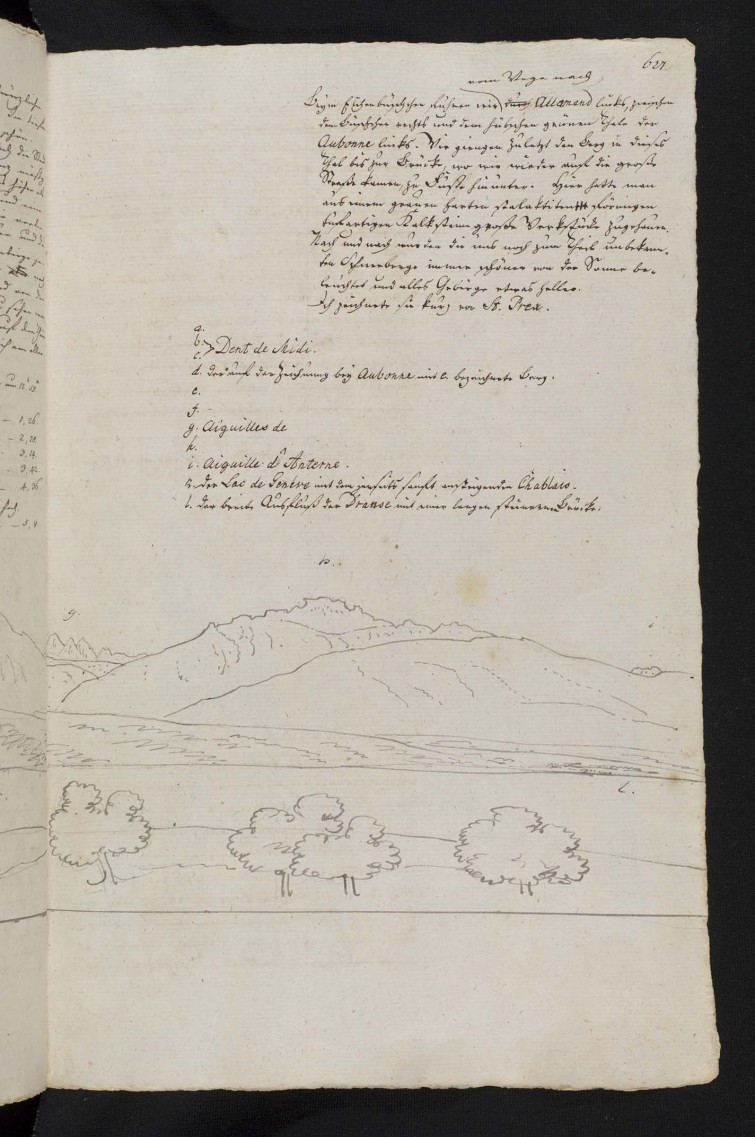 627.
vom Wege nach
Beym Eichenbüschchen fuhren wir durch Allamand links, zwischen
den Büschchen rechts und dem hübschen grünen Thale der
Aubonne links. Wir giengen zuletzt den Berg in dieses
Thal bis zur Brücke, wo wir wieder auf die große
Straße kamen, zu Fuße hinunter. Hier hatte man
aus einem grauen harten stalaktiten förmigen
tufartigen Kalksteine große Werkstücke zugehauen.
Nach und nach wurden die uns noch zum Theil unbekann-
ten Schneeberge immer schöner von der Sonne be-
leuchtet und alles Gebirge etwas heller.
Ich zeichnete sie kurz vor St. Prex.
a.
b. > Dent de Midi.
c.
d. der auf der Zeichnung bey Aubonne mit e. bezeichnete Berg.
e.
f.
g. Aiguilles de
h.
i. Aiguille d'Anterne.
k. der Lac de Genève mit dem jenseits sanft ansteigenden Chablais.
l. der breite Ausfluß der Dranse mit einer langen steinernen Brücke.
h.
g.
i
l.